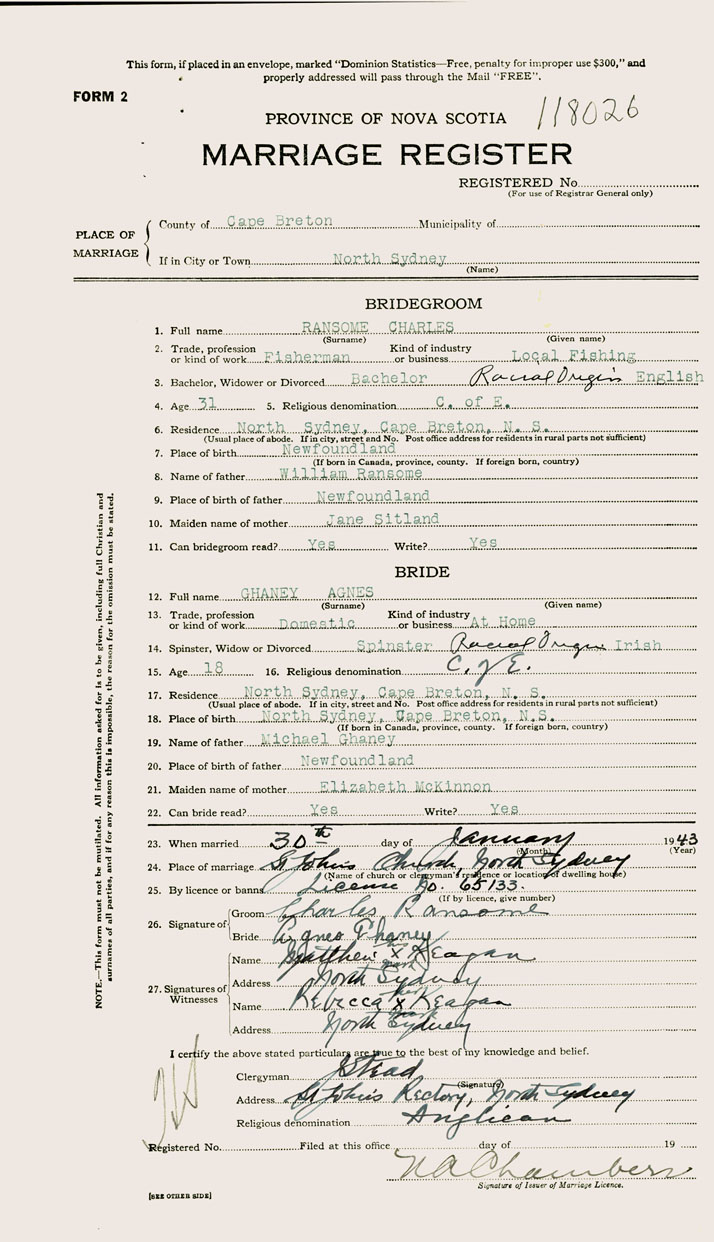 This form, if placed in an envelope, marked "Dominion Statistics—Free, penalty for improper use $300," and
properly addressed will pass through the Mail "FREE".
FORM 2
PROVINCE OF NOVA SCOTIA 118026
MARRIAGE REGISTER
REGISTERED No.
(For use of Registrar General only)
PLACE OF MARRIAGE
County of Cape Breton Municipality of
If in City or Town North Sydney
(Name)
BRIDEGROOM
1. Full name RANSOME CHARLES
(Surname) (Given name)
2. Trade, profession or kind of work Fisherman Kind of industry or business Local Fishing
3. Bachelor, Widower or Divorced Bachelor Racial Origin English
4. Age 31 5. Religious denomination C. of E.
6. Residence North Sydney, Cape Breton, N. S.
(Usual place of abode. If in city, street and No. Post office address for residents in rural parts not sufficient)
7. Place of birth Newfoundland
(If born in Canada, province, county. If foreign born, country)
8. Name of father William Ransome
9. Place of birth of father Newfoundland
10. Maiden name of mother Jane Sitland
11. Can bridegroom read? Yes Write? Yes
BRIDE
12. Full name GHANEY AGNES
(Surname) (Given name)
13. Trade, profession or kind of work Domestic Kind of industry or business At Home
14. Spinster, Widow or Divorced Spinster Racial Origin Irish
15. Age 18 16. Religious denomination C. of E.
17. Residence North Sydney, Cape Breton, N. S.
(Usual place of abode. If in city, street and No. Post office address for residents in rural parts not sufficient)
18. Place of birth North Sydney, Cape Breton, N.S.
(If born in Canada, province, county. If foreign born, country)
19. Name of father Michael Ghaney
20. Place of birth of father Newfoundland
21. Maiden name of mother Elizabeth McKinnon
22. Can bride read? Yes Write? Yes
23. When married 30th day of January 1943
(Month) (Year)
24. Place of marriage St Johns Church, North Sydney
(Name of church or clergyman's residence or location of dwelling house)
25. By licence or banns License No. 65133.
(If by licence, give number)
26. Signature of
Groom Charles Ransome
Bride Agnes Ghaney
27. Signatures of Witnesses
Name Matthew X Keagan
Address North Sydney
Name Rebecca X Keagan
Address North Sydney
I certify the above stated particulars are true to the best of my knowledge and belief.
Clergyman J Stead
(Signature)
Address St John's Rectory, North Sydney
Religious denomination Anglican
Registered No. Filed at this office day of 19
N A Chambers
Signature of Issuer of Marriage Licence.
[SEE OTHER SIDE]
NOTE.—This form must not be mutilated. All information asked for is to be given, including full Christian and
surnames of all parties, and if for any reason this is impossible, the reason for the omission must be stated.